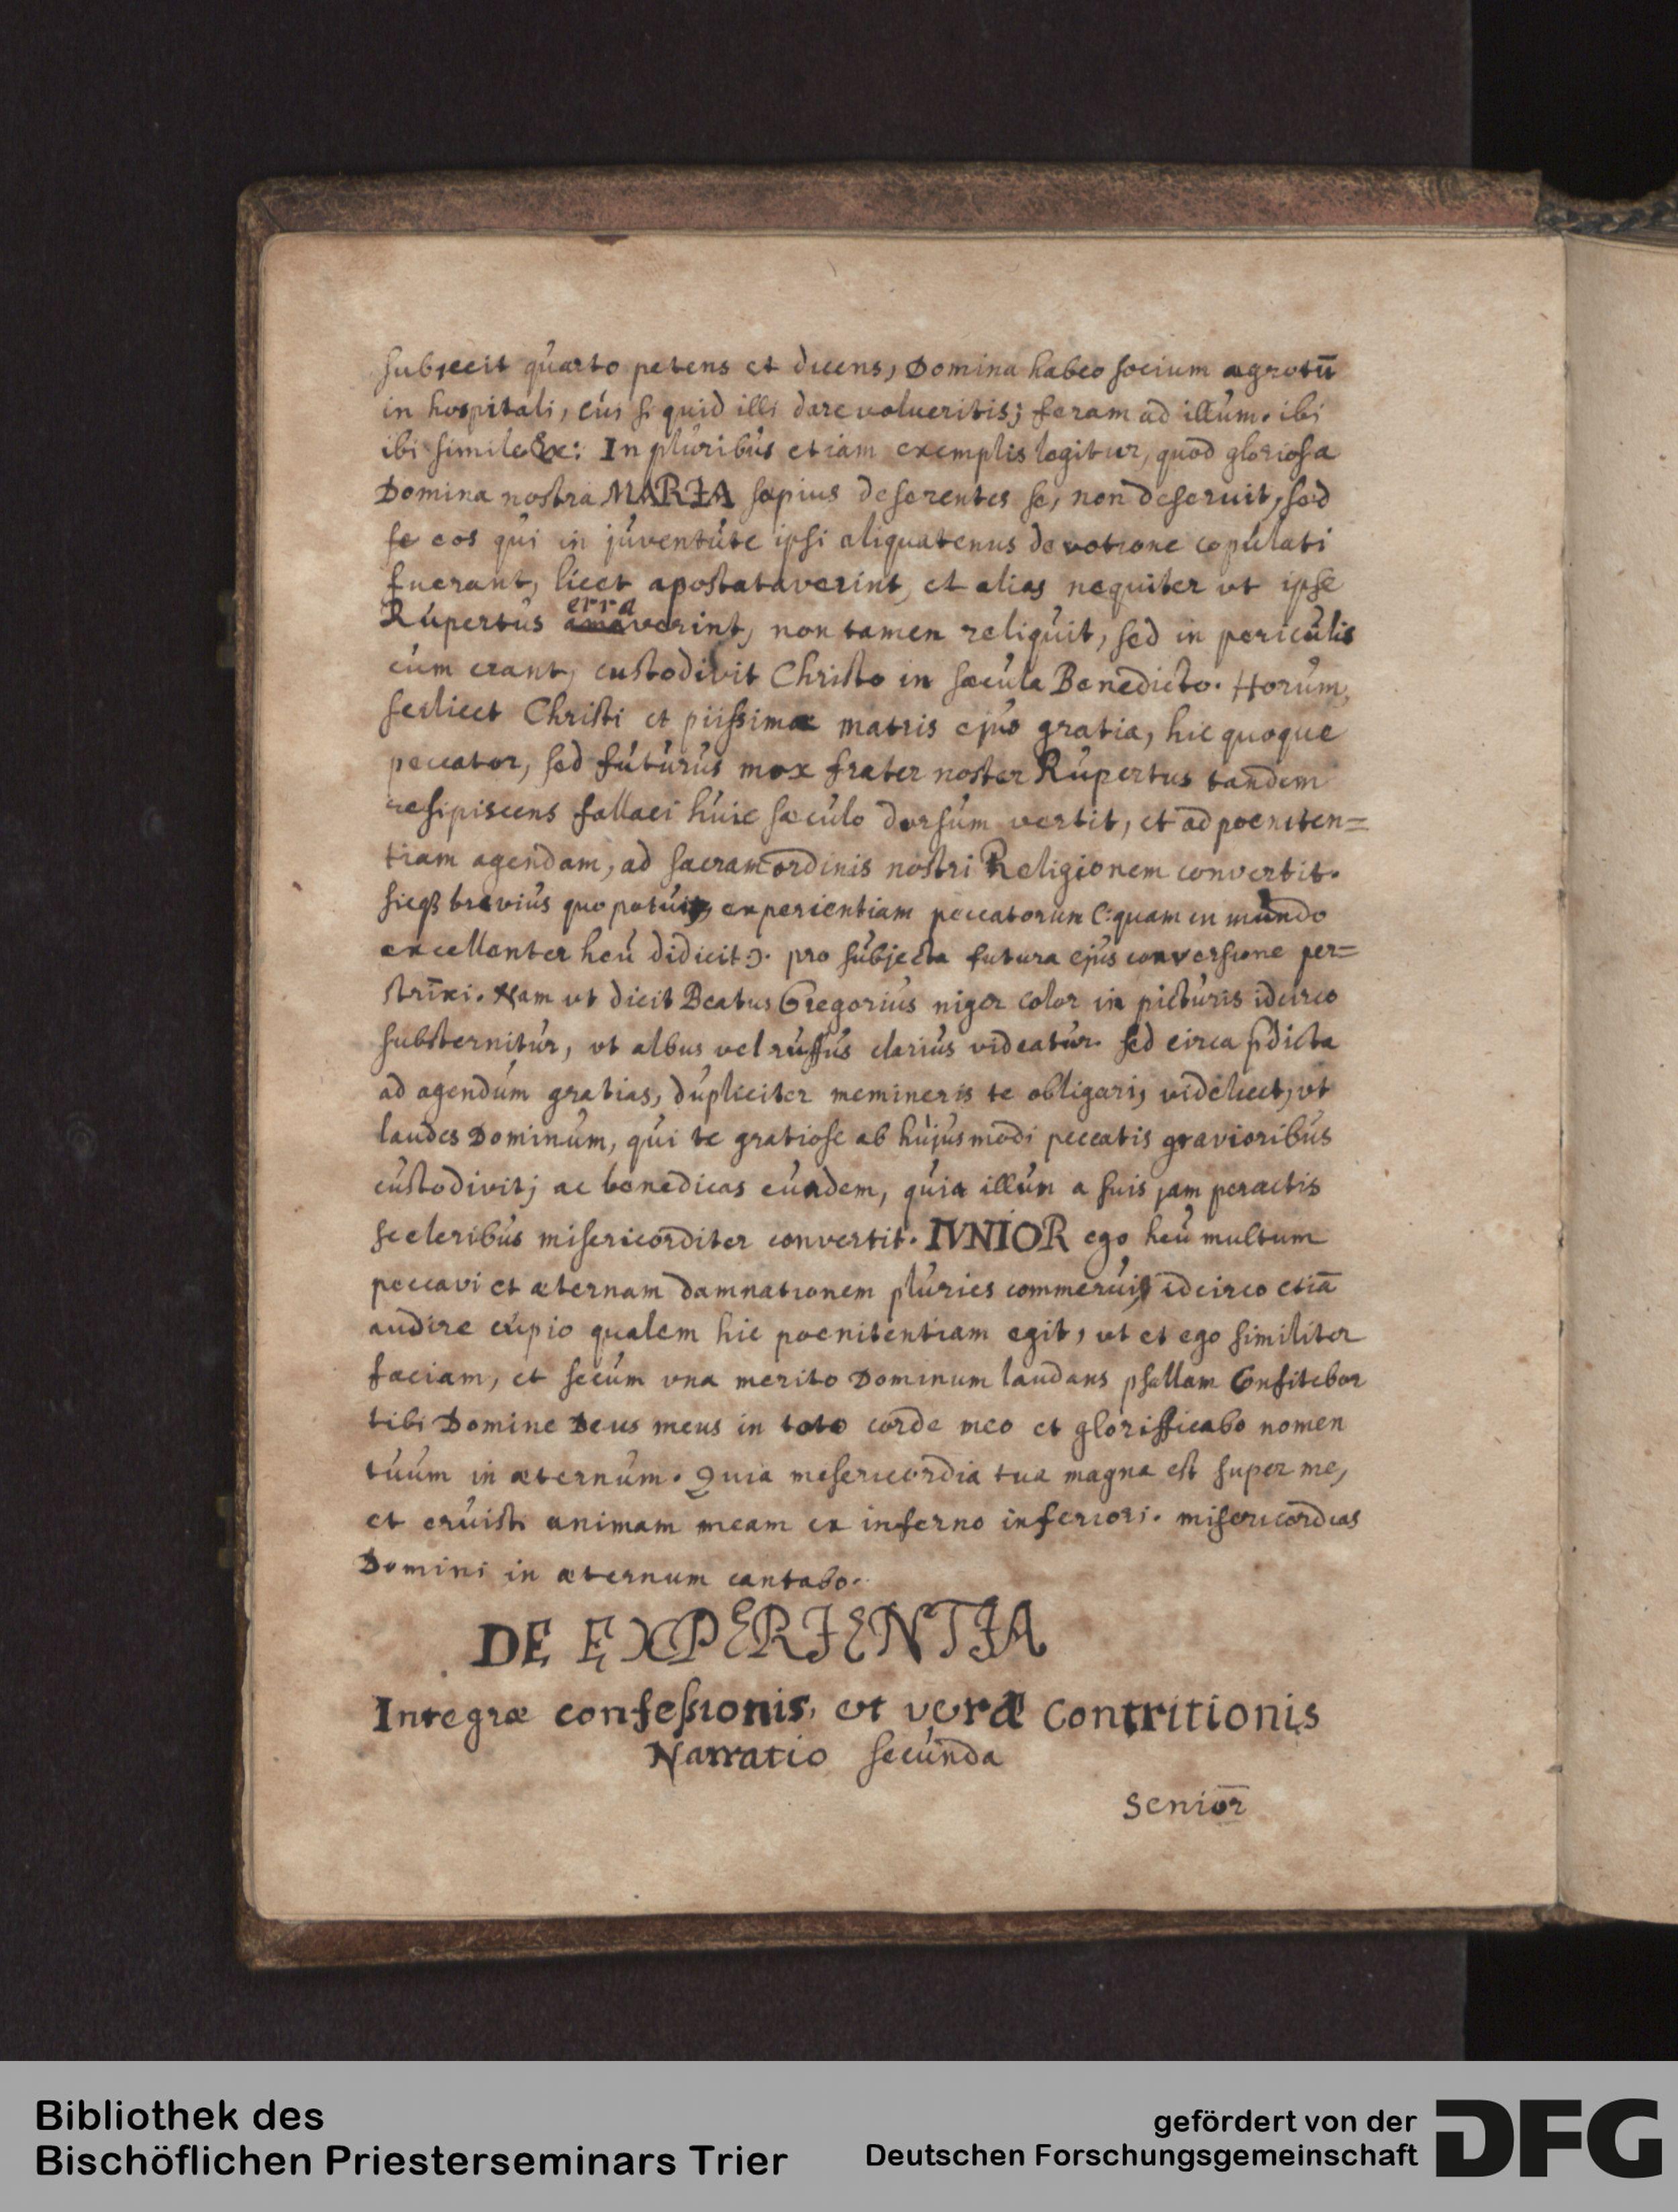 subjecit quarto petens et dicens, Domina habeo socium ægrotū
in hospitali, cui si quid illi dare volueritis; feram ad illum. ibi
ibi simile Ex: In pluribus etiam exemplis legitur, quod gloriosa
Domina nostra MARIA sæpius deserentes se, non deseruit, sed
se eos qui in juventute ipsi aliquatenus devotione copulati
fuerant, licet apostataverint, et alias nequiter ut ipse
erra
Rupertus amaverint, non tamen reliquit, sed in periculis
cum erant, custodivit Christo in sæcula Benedicto. Horum,
scilicet Christi et piissimæ matris ejus gratia, hic quoque
peccator, sed futurus mox frater noster Rupertus tandem
resipiscens fallaci huic sæculo dorsum vertit, et ad poeniten=
tiam agendam, ad sacram ordinis nostri Religionem convertit.
sicq3 brevius quo potui, experientiam peccatorum (:quam in mundo
excellenter heu didicit:). pro subjecta futura ejus conversione per=
strinxi. Nam ut dicit Beatus Gregorius niger color in picturis idcirco
substernitur, ut albus vel ruffus clarius videatur. sed circa p̄dicta
ad agendum gratias, dupliciter memineris te obligari, videlicet, ut
laudes Dominum, qui te gratiose ab hujusmodi peccatis gravioribus
custodivit; ac benedicas eundem, quia illum a suis jam peractis
sceleribus misericorditer convertit. IVNIOR ego heu multum
peccavi et æternam damnationem pluries commerui, idcirco etiā
audire cupio qualem hic poenitentiam egit, ut et ego similiter
faciam, et secum una merito Dominum laudans psallam Confitebor
tibi Domine Deus meus in toto corde meo et glorifficabo nomen
tuum in æternum. Quia misericordia tua magna est super me,
et eruisti animam meam ex inferno inferiori. misericordias
Domini in æternum cantabo.
DE EXPERIENTIA
Integræ confessionis, et veræ Contritionis
Narratio secunda
Senior
Bibliothek des
Bischöflichen Priesterseminars Trier
gefördert von der
Deutschen Forschungsgemeinschaft
DFG